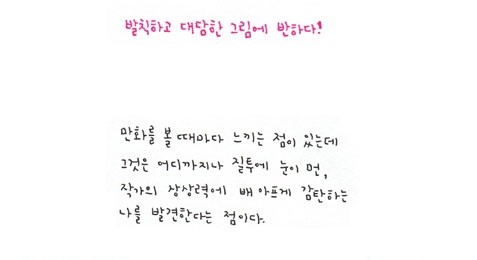 발칙하고 대담한 그림에 반하다!
만화를 볼 때마다 느끼는 점이 있는데
그것은 어디까지나 질투에 눈이 먼,
작가의 상상력에 배 아프게 감탄하는
나를 발견한다는 점이다.